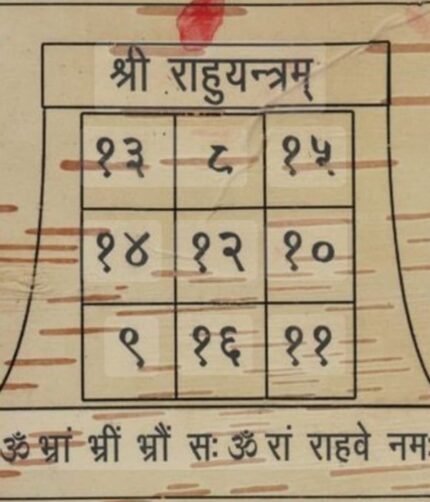 श्री राहुयन्त्रम्
१३ ८ १५
१४ १२ १०
९ १६ ११
ॐ भ्रां भ्रीं भ्रौं सः ॐ रां राहवे नमः